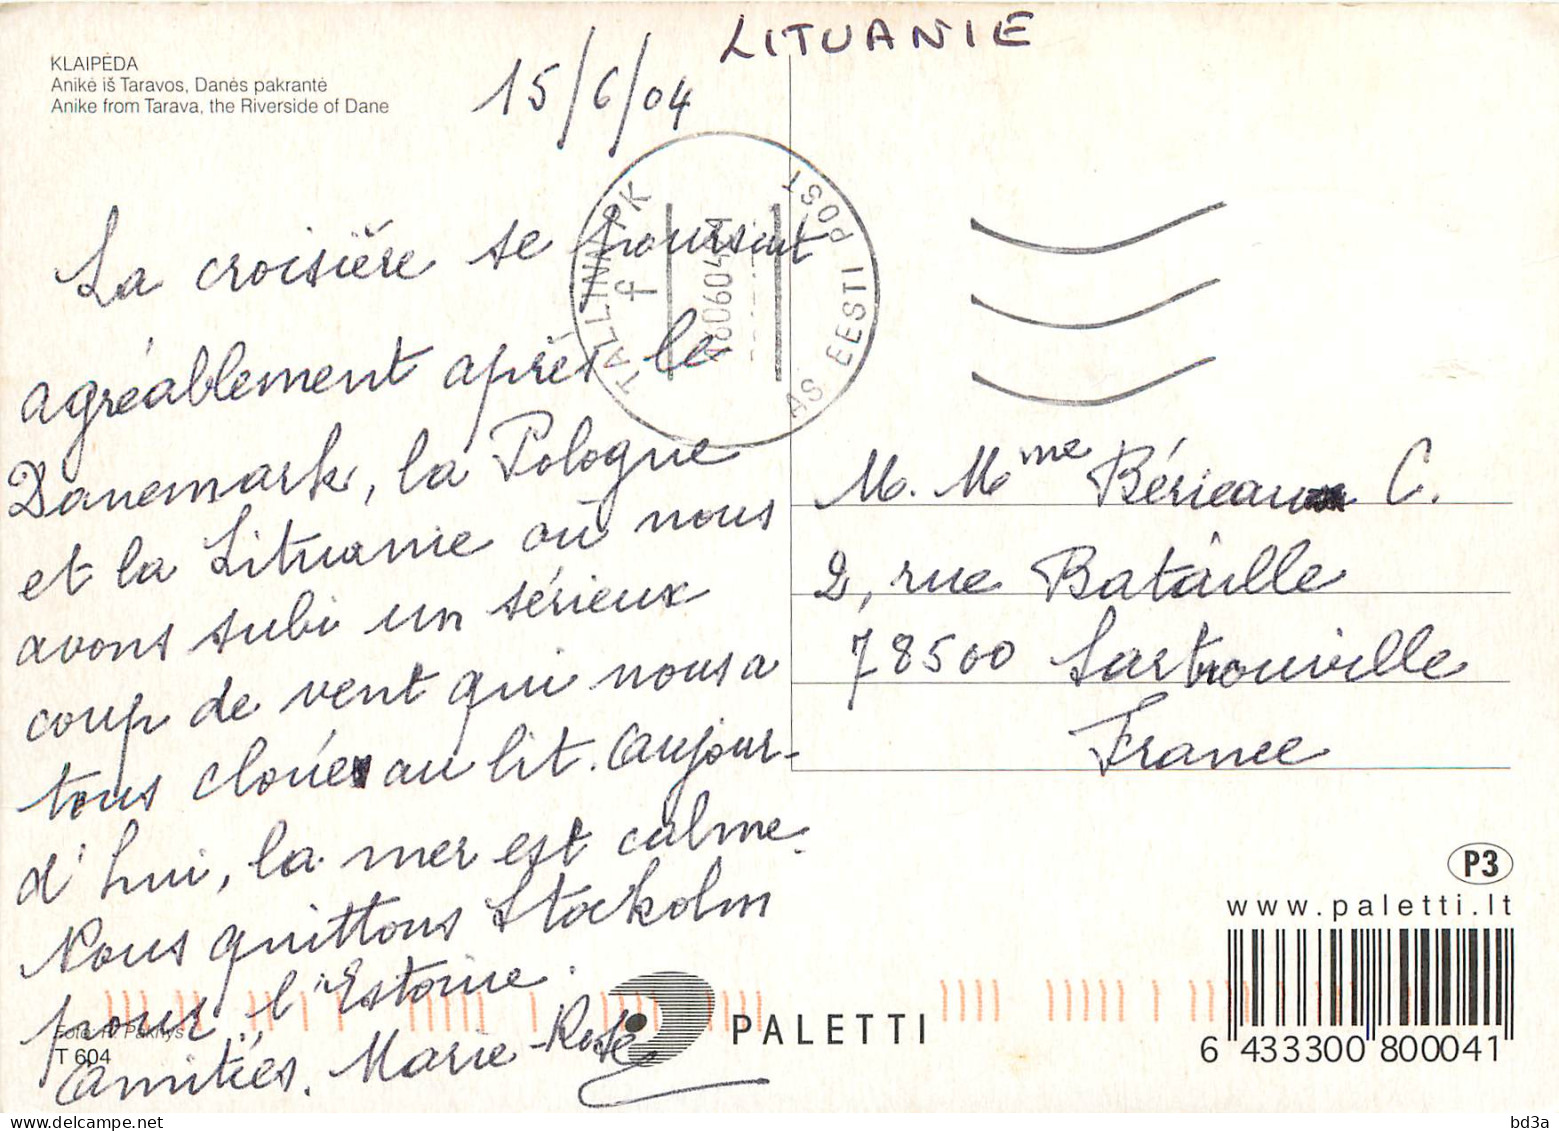 LITUANIE
KLAIPĖDA
Anikė iš Taravos, Danės pakrantė
Anike from Tarava, the Riverside of Dane
15/6/04
TALLINN ARK
AS EESTI POST
La croisière se poursuit
agréablement après le
Danemark, la Pologne
et la Lituanie où nous
avons subi un sérieux
coup de vent qui nous a
tous cloués au lit. Aujour-
d'hui, la mer est calme.
Nous quittons Stockolm
pour l'Estonie.
Amitiés. Marie-Rose
M. Mme Bérieau C.
2, rue Bataille
78500 Sartrouville
France
T 604
PALETTI
P3
www.paletti.lt
6 433300 800041
bd3a